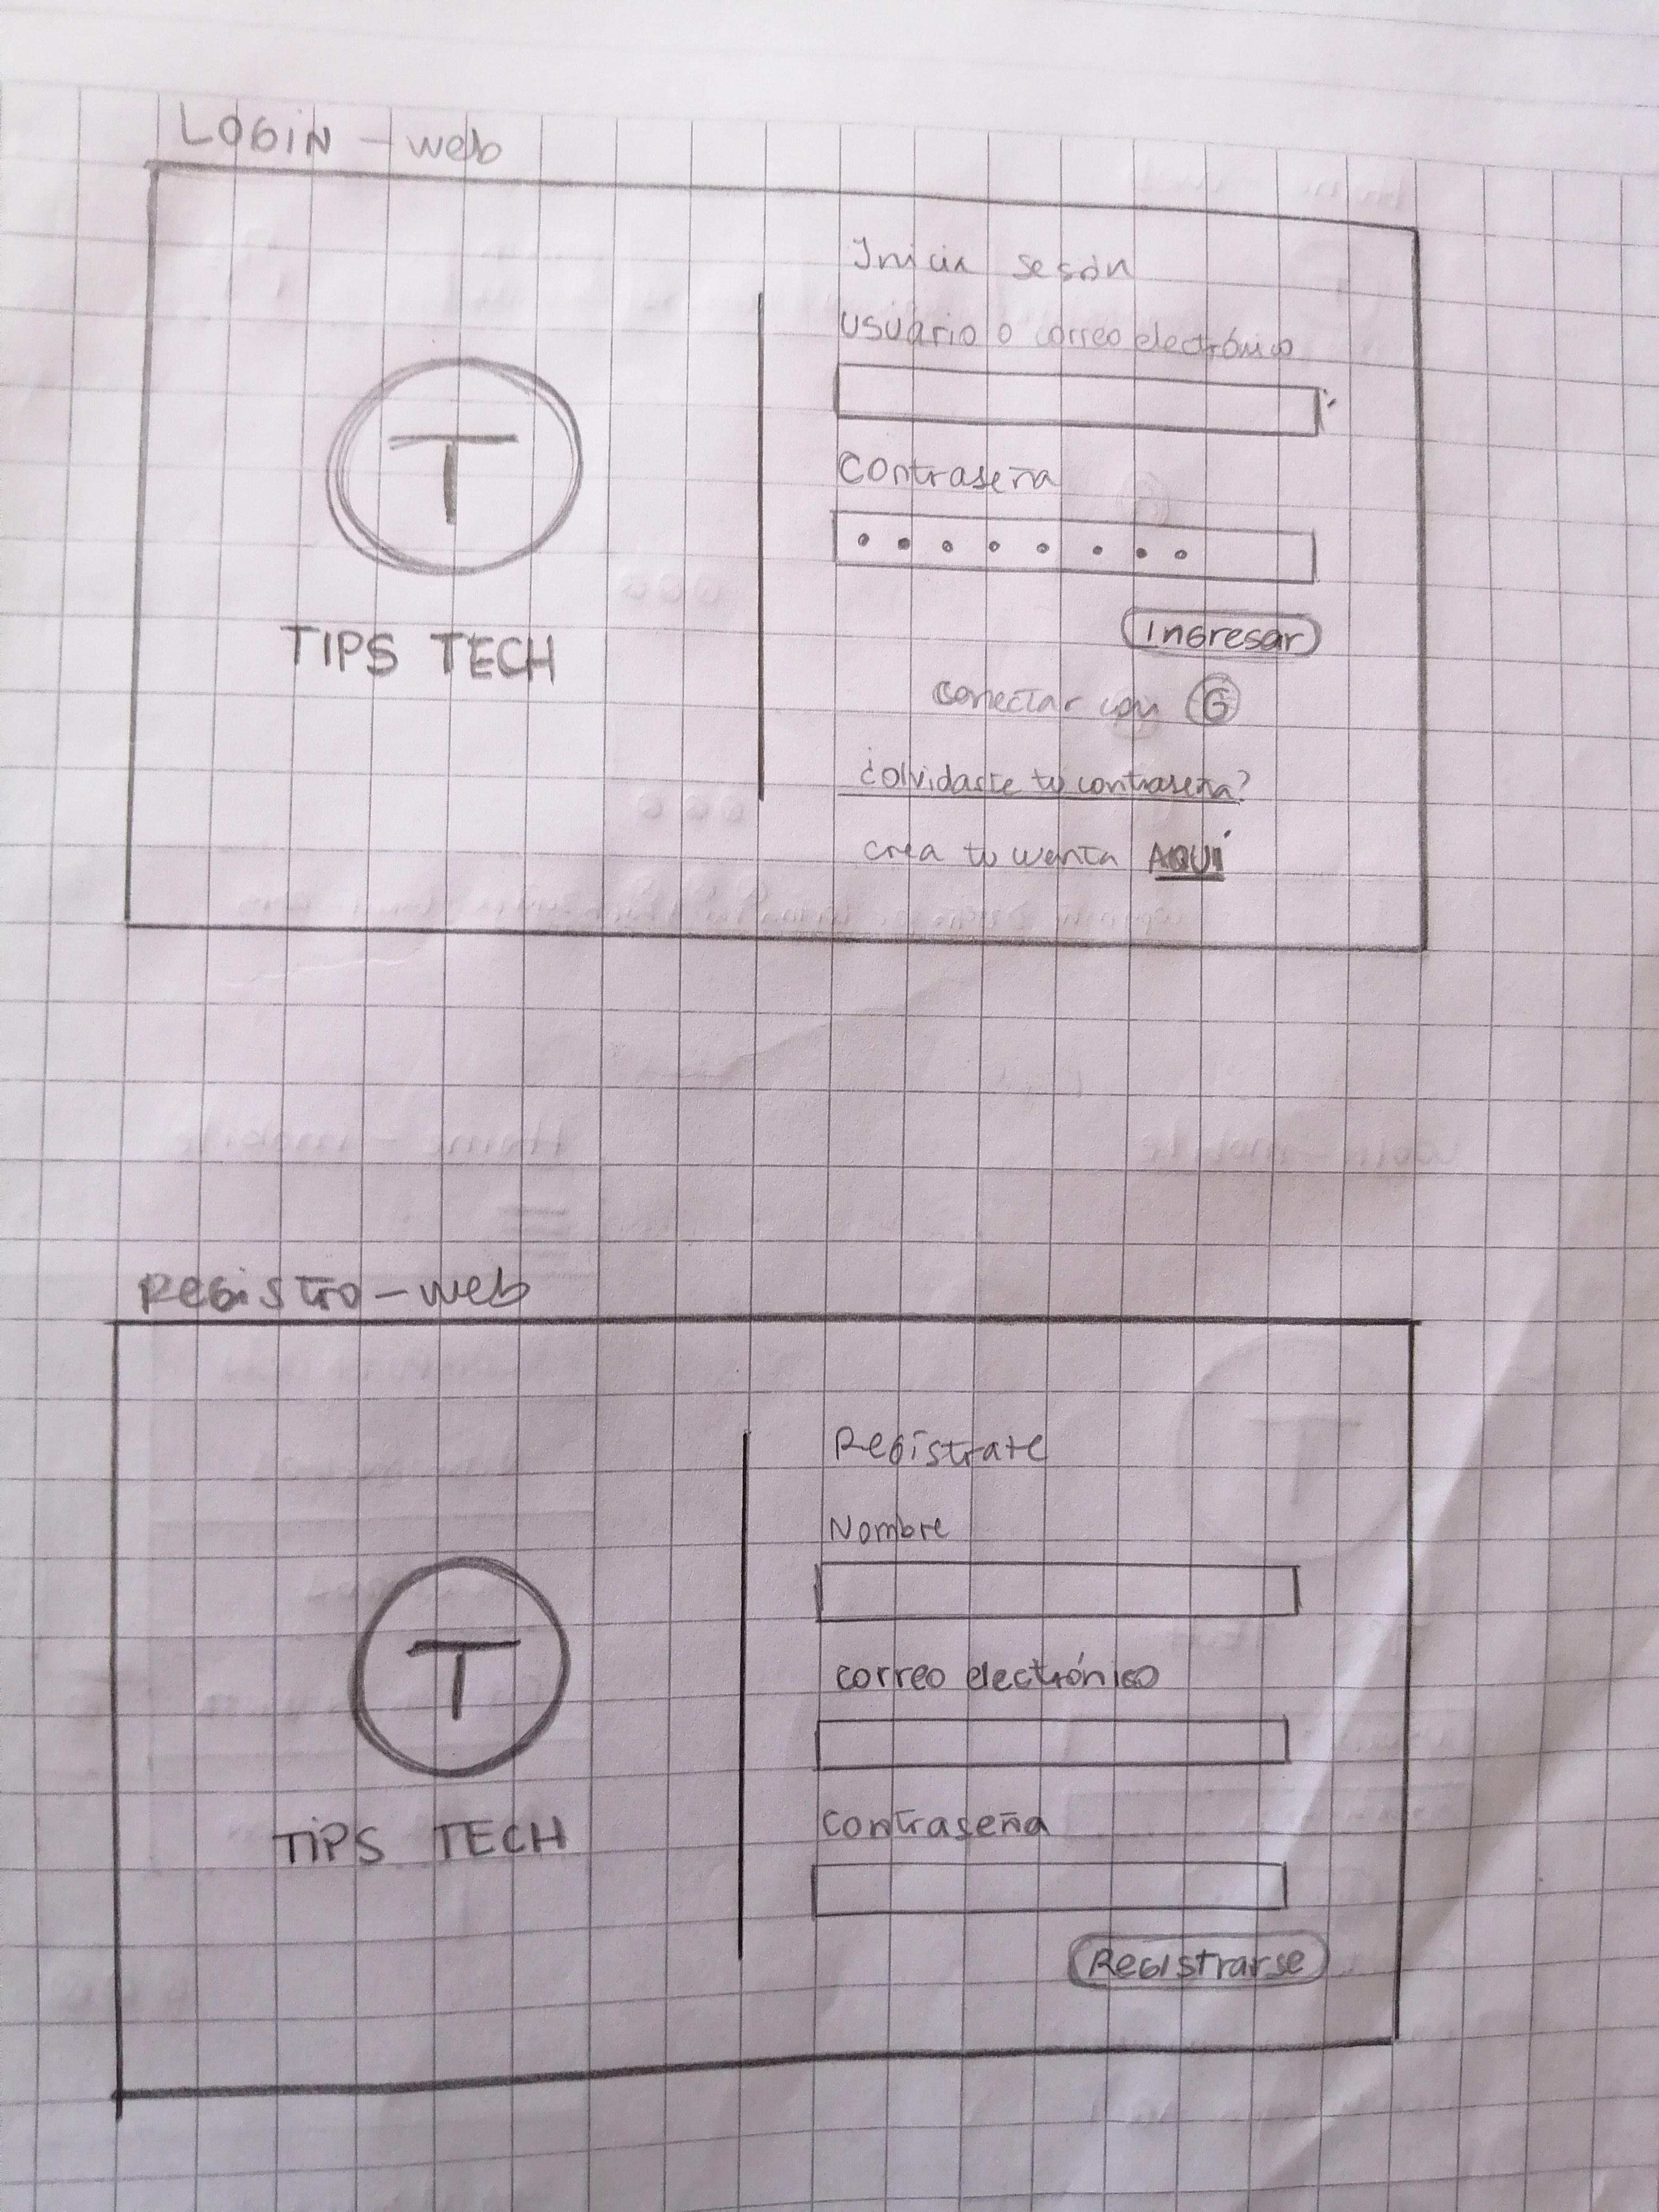 LOGIN - web
Inicia sesón
usuário o correo electrónico
T
contraseña
TIPS TECH
Ingresar
conectar con G
¿olvidaste tu contraseña?
crea tu cuenta AQUÍ
Registro - web
Regístrate
Nombre
T
correo electrónico
TIPS TECH
contraseña
Registrarse